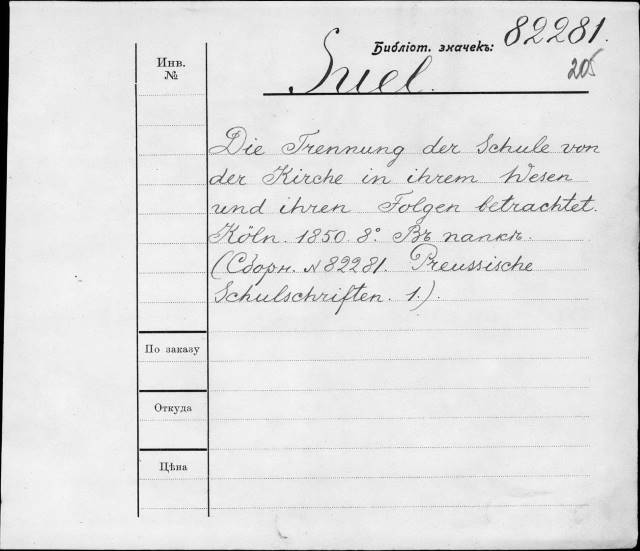 Библіот. значекъ: 82281.
205
Инв.
№
Snel.
Die Trennung der Schule von
der Kirche in ihrem Wesen
und ihren Folgen betrachtet.
Köln. 1850. 8°. Въ папкѣ.
(Сборн. № 82281. Preussische
Schulschriften. 1.).
По заказу
Откуда
Цѣна